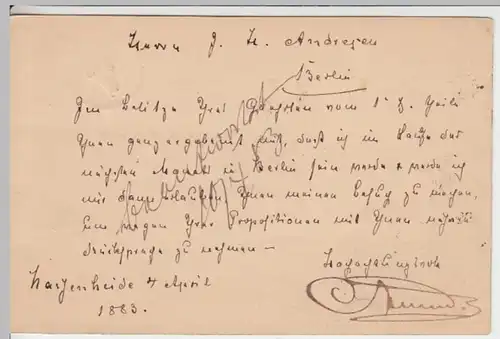 Herrn J. H. Andresen
Berlin
Im Besitze Ihres Geehrten vom 1. d. theile
Ihnen ganz ergebenst mit, dass ich im Laufe des
nächsten Monats in Berlin sein werde & werde ich
mir dann erlauben Ihnen meinen Besuch zu machen,
um wegen Ihrer Propositionen mit Ihnen
Rücksprache zu nehmen —
Hochachtungsvoll
4 April
1883.